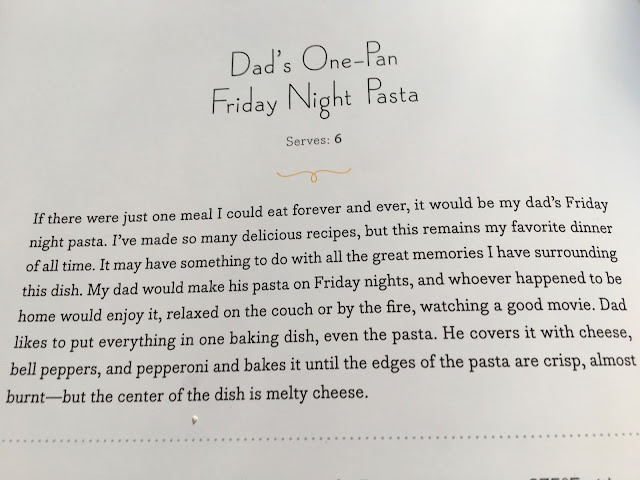 Dad's One-Pan
Friday Night Pasta
Serves: 6
If there were just one meal I could eat forever and ever, it would be my dad's Friday
night pasta. I've made so many delicious recipes, but this remains my favorite dinner
of all time. It may have something to do with all the great memories I have surrounding
this dish. My dad would make his pasta on Friday nights, and whoever happened to be
home would enjoy it, relaxed on the couch or by the fire, watching a good movie. Dad
likes to put everything in one baking dish, even the pasta. He covers it with cheese,
bell peppers, and pepperoni and bakes it until the edges of the pasta are crisp, almost
burnt—but the center of the dish is melty cheese.